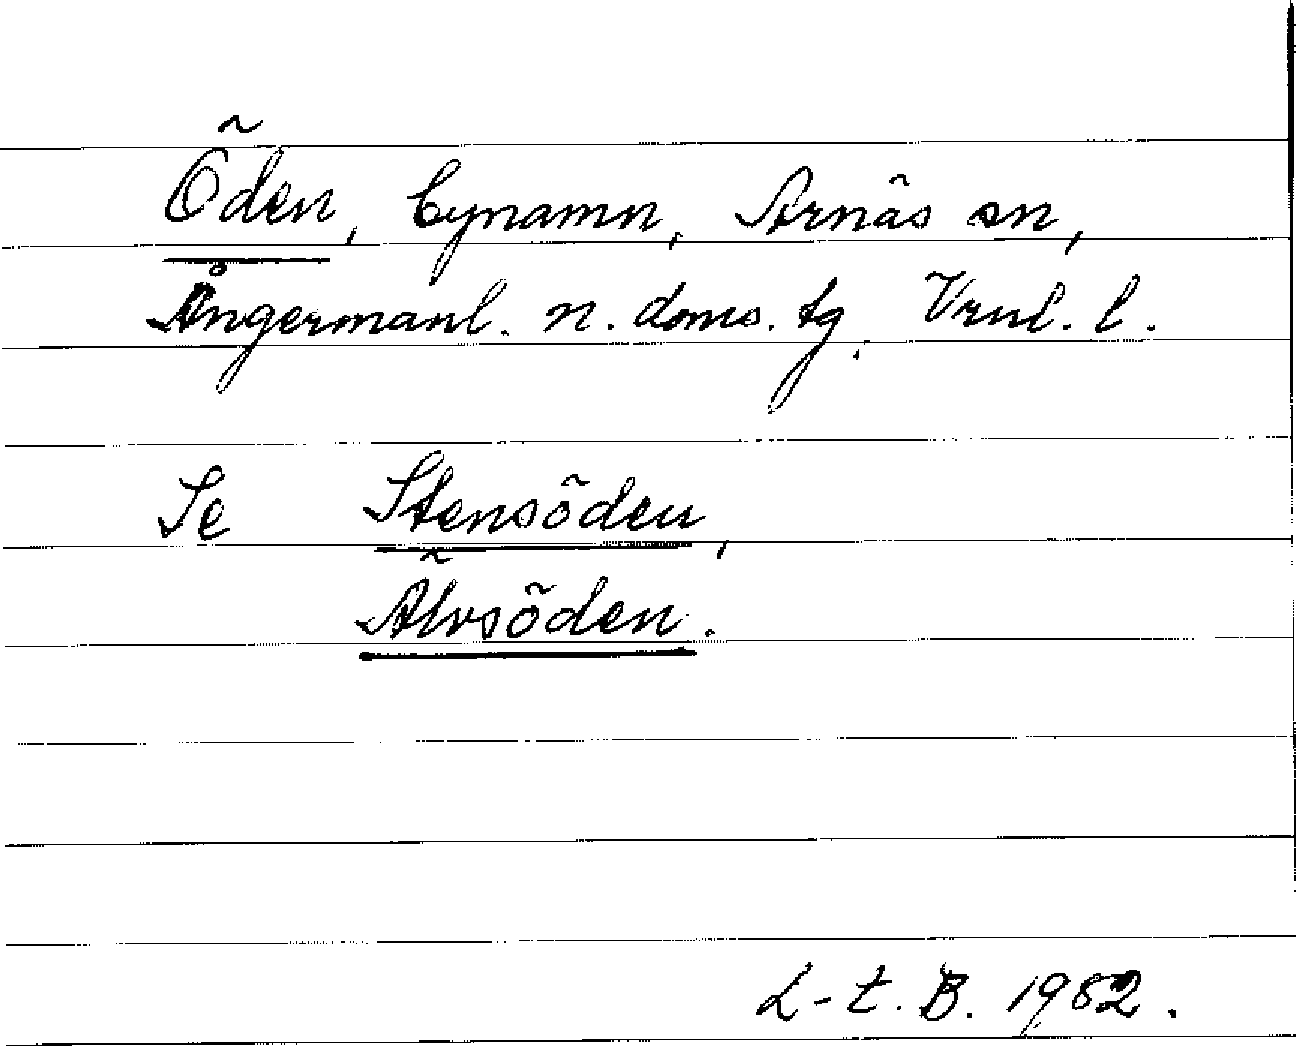 Öden, bynamn, Arnäs sn,
Ångermanl. n. doms. tg. Vrnl. l.
Se Stensöden,
Älvsöden.
L-E. B. 1982.